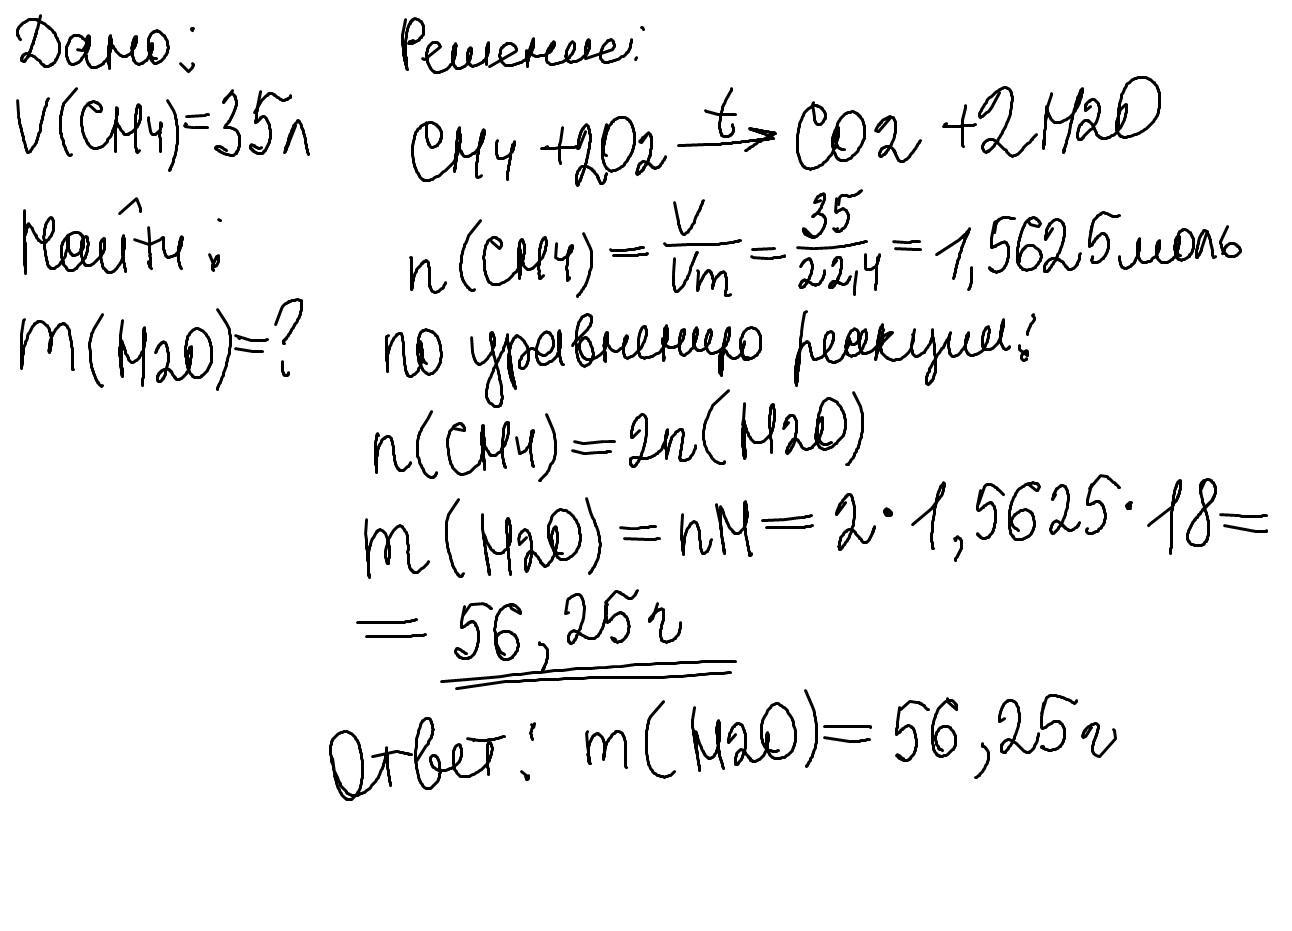 Дано:
V(CH4)=35л
Найти:
m(H2O)=?
Решение:
CH4 +2O2 →t CO2 +2H2O
n(CH4) = V/Vm = 35/22,4 = 1,5625 моль
по уравнению реакции:
n(CH4) = 2n(H2O)
m(H2O) = nM = 2·1,5625·18=
= 56,25 г
Ответ: m(H2O)= 56,25 г